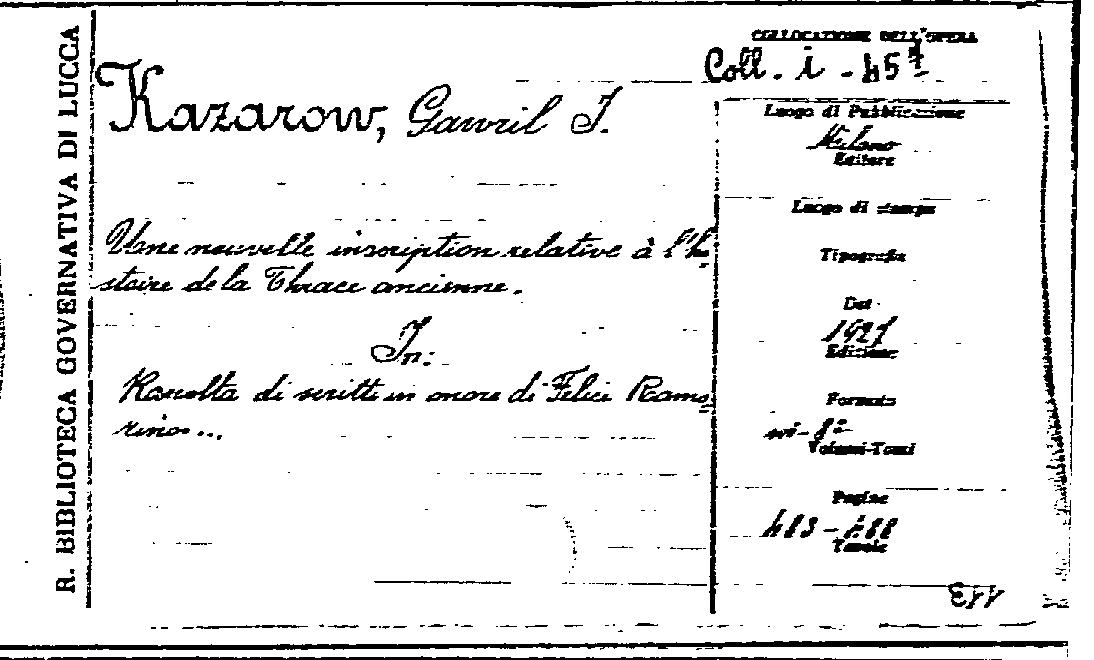 R. BIBLIOTECA GOVERNATIVA DI LUCCA
COLLOCAZIONE DELL'OPERA
Coll. i - 45
Kazarow, Gawril I.
Luogo di Pubblicazione
Milano
Editore
Luogo di stampa
Une nouvelle inscription relative à l'hi-
stoire de la Thrace ancienne.
Tipografia
Dat
1927
Edizione
In:
Raccolta di scritti in onore di Felice Ramo-
rino...
Formato
in-8º
Volumi-Tomi
Pagine
483-488
Tavole